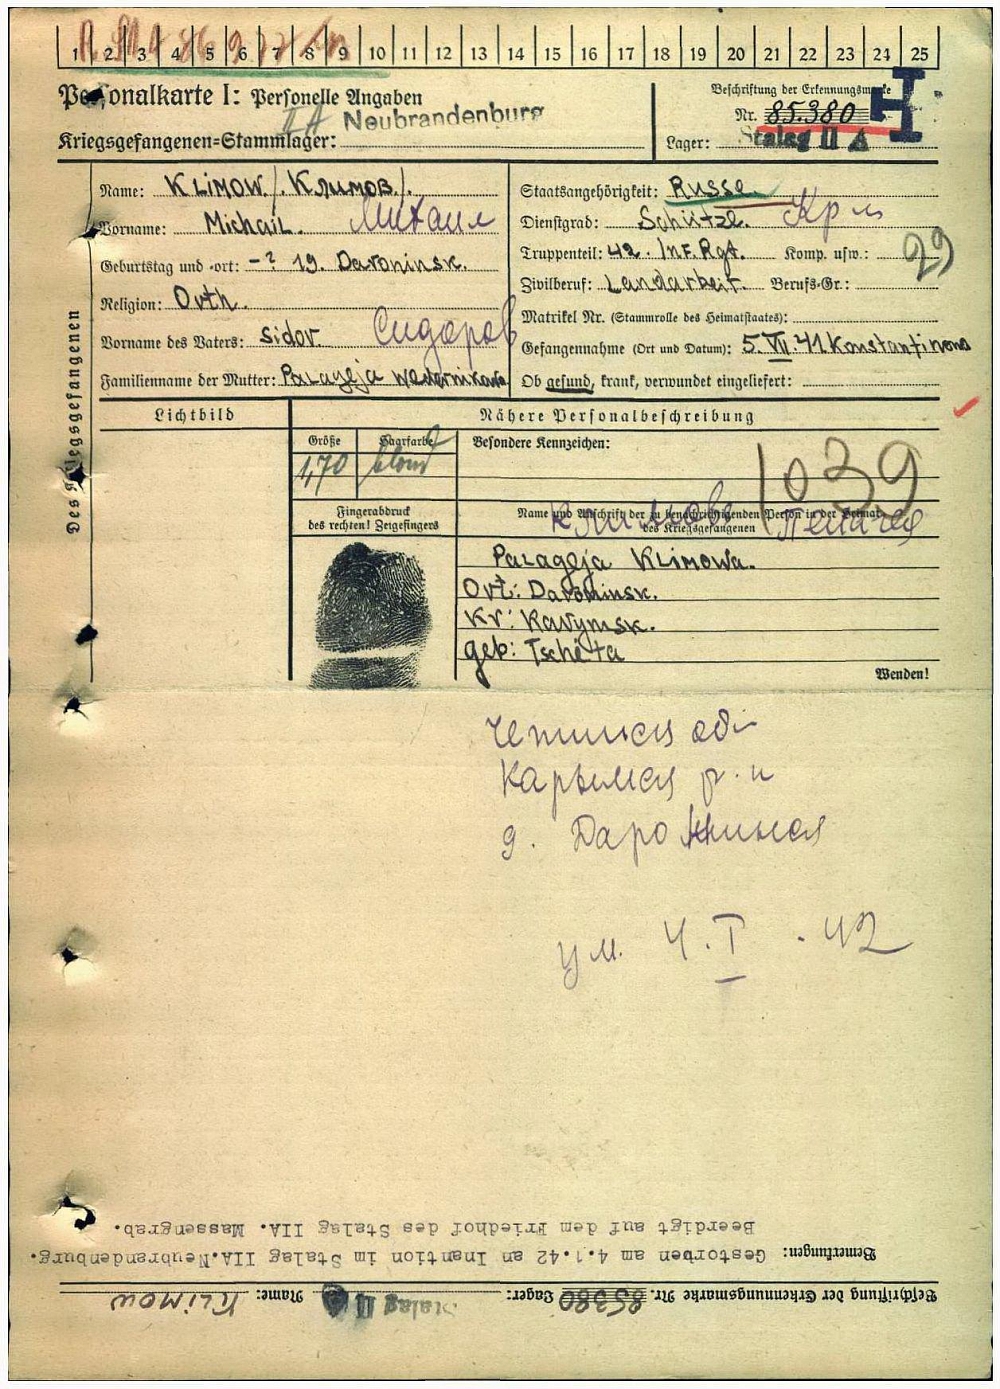 1 2 3 4 5 6 7 8 9 10 11 12 13 14 15 16 17 18 19 20 21 22 23 24 25
Personalkarte I: Personelle Angaben
II A Neubrandenburg
Kriegsgefangenen-Stammlager:
Beschriftung der Erkennungsmarke
Nr. 85.380
Lager: Stalag II A
Des Kriegsgefangenen
Name: KLIMOW. /.Климов./.
Vorname: Michail. Михаил
Geburtstag und -ort: -? 19. Daroninsk.
Religion: Orth.
Vorname des Vaters: Sidor Сидоров
Familienname der Mutter: Palageja Wedernikowa
Staatsangehörigkeit: Russe.
Dienstgrad: Schütze. Кр
Truppenteil: 42. Inf. Rgt. Komp. usw.: 29
Zivilberuf: Landarbeit. Berufs-Gr.:
Matrikel Nr. (Stammrolle des Heimatstaates):
Gefangennahme (Ort und Datum): 5. VII. 41 Konstantinono
Ob gesund, krank, verwundet eingeliefert:
Lichtbild
Nähere Personalbeschreibung
Größe Haarfarbe Besondere Kennzeichen:
1,70 blond
1039
Fingerabdruck
des rechten! Zeigefingers
Name und Anschrift der zu benachrichtigenden Person in der Heimat
des Kriegsgefangenen
Климова Пелагея
Palageja Klimowa.
Ort: Daroninsk.
Kr: Karymsk.
geb: Tscheta
Wenden!
Четинск об
Карымск р.н
д. Даронинск
ум. 4.I.42
Beerdigt auf dem Friedhof des Stalag IIA. Massengrab.
Bemerkungen: Gestorben am 4.1.42 an Inantion im Stalag IIA.Neubrandenburg.
Beschriftung der Erkennungsmarke Nr. 85380 Lager: Stalag II A Name: KLIMOW